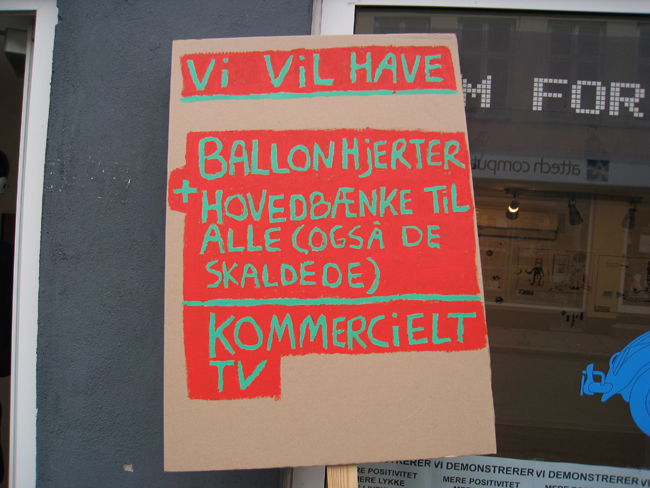 Vi ViL HAVE
BALLONHjERTER
+ HOVEDBÆNKE TiL
ALLE (OGSÅ DE
SKALDEDE)
KOMMERCiELT
TV
M FOR
attech comput
VI DEMONSTRERER VI DEMONSTRERER VI DEMONSTRERER
MERE POSITIVITET
MERE LYKKE
MERE POSITIVITET